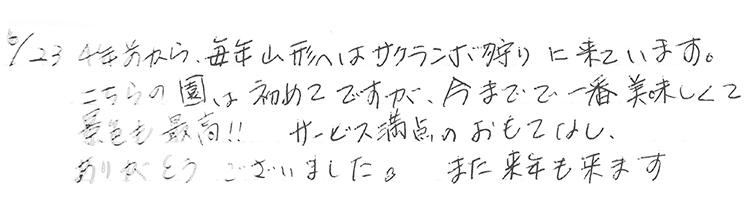 6/23 4年前から、毎年山形へはサクランボ狩りに来ています。
こちらの園は初めてですが、今までで一番美味しくて
景色も最高!! サービス満点のおもてなし、
ありがとうございました。 また来年も来ます